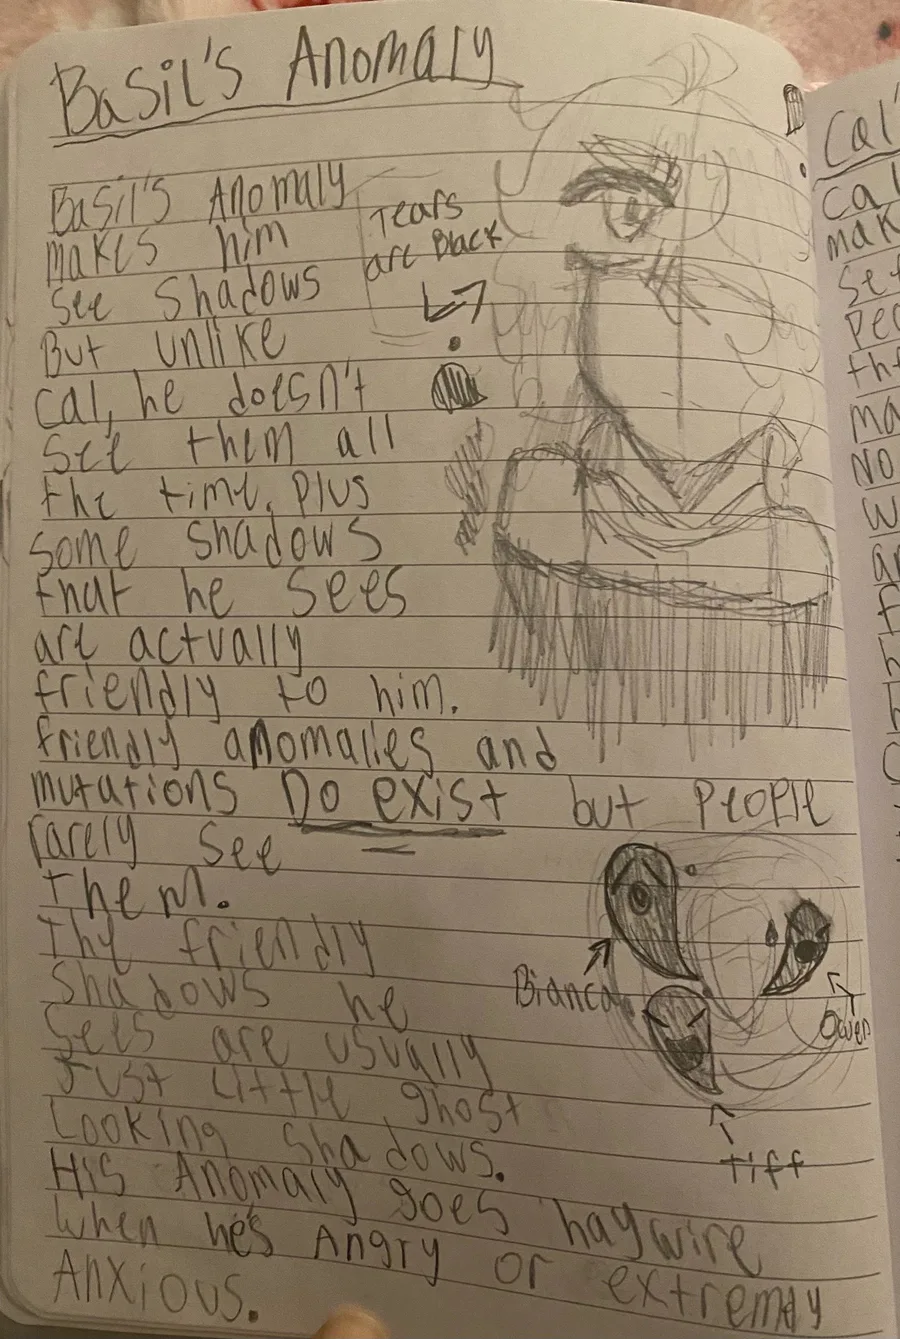 Basil's Anomaly
Basil's Anomaly
makes him
see shadows
But unlike
Cal, he doesn't
see them all
the time. Plus
some shadows
that he sees
are actually
friendly to him.
friendly anomalies and
mutations Do exist but people
rarely see
them.
The friendly
shadows he
sees are usually
Just Little ghost
Looking shadows.
His Anomaly goes haywire
when he's Angry or extremly
Anxious.
Tears
are Black
Bianca
Owen
Tiff
Cal'
Cal
mak
see
Peo
the
ma
No
W